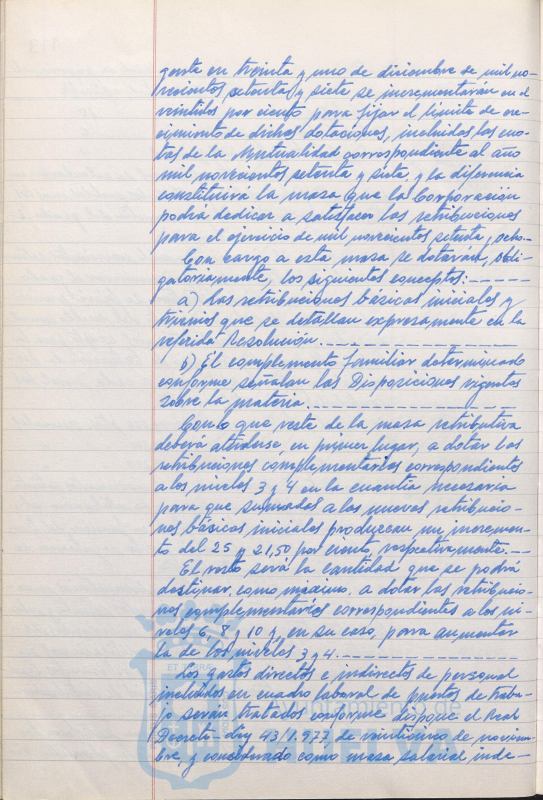 gente en treinta y uno de diciembre de mil no-
vecientos setenta y siete se incrementarán en el
veintidós por ciento para fijar el límite de cre-
cimiento de dichas dotaciones, incluidas las cuo-
tas de la Mutualidad correspondiente al año
mil novecientos setenta y siete, y la diferencia
constituirá la masa que la Corporación
podrá dedicar a satisfacer las retribuciones
para el ejercicio de mil novecientos setenta y ocho.
Con cargo a esta masa se dotarán, obli-
gatoriamente, los siguientes conceptos:
a) Las retribuciones básicas iniciales y
trienios que se detallan expresamente en la
referida Resolución.
b) El complemento familiar determinado
conforme señalan las Disposiciones vigentes
sobre la materia.
Con lo que reste de la masa retributiva
deberá atenderse, en primer lugar, a dotar las
retribuciones complementarias correspondientes
a los niveles 3 y 4 en la cuantía necesaria
para que sumadas a las nuevas retribucio-
nes básicas iniciales produzcan un incremen-
to del 25 y 21,50 por ciento, respectivamente.
El resto será la cantidad que se podrá
destinar, como máximo, a dotar las retribucio-
nes complementarias correspondientes a los ni-
veles 6, 8 y 10 y, en su caso, para aumentar
la de los niveles 3 y 4.
Los gastos directos e indirectos de personal
incluidos en cuadro laboral de puestos de traba-
jo serán tratados conforme dispone el Real
Decreto-Ley 43/1.977 de veinticinco de noviem-
bre, y considerado como masa salarial inde-
Ayuntamiento de
HUELVA